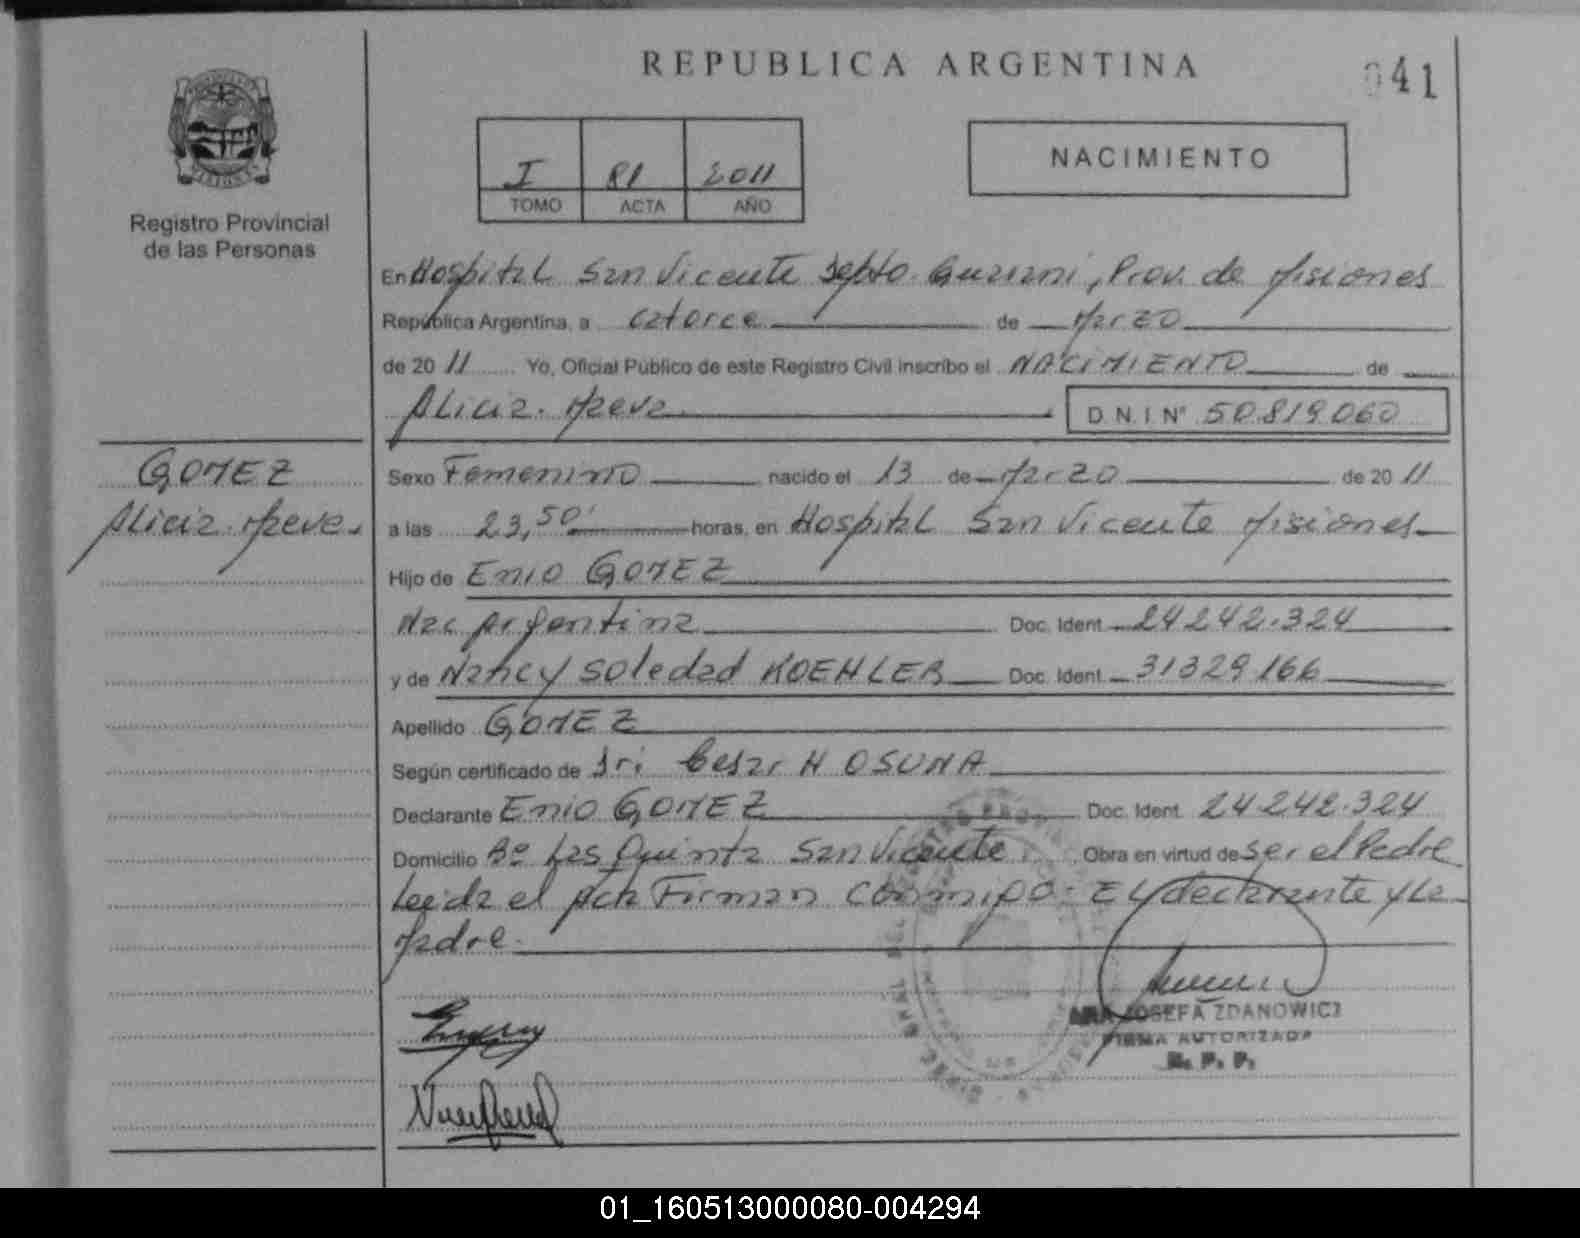 REPUBLICA ARGENTINA
041
I 81 2011
TOMO ACTA AÑO
NACIMIENTO
Registro Provincial
de las Personas
En Hospital San Vicente Depto. Guarani, Prov. de Misiones
República Argentina, a catorce de Marzo
de 2011 Yo, Oficial Público de este Registro Civil inscribo el NACIMIENTO de
Alicia Maeva
D.N.I. Nº 50.819.060
GOMEZ
Alicia Maeva
Sexo Femenino nacido el 13 de Marzo de 2011
a las 23,50' horas, en Hospital San Vicente Misiones
Hijo de Enio GOMEZ
Nac Argentina Doc. Ident. 24242.324
y de Nancy Soledad KOEHLER Doc. Ident. 31329166
Apellido GOMEZ
Según certificado de Dr: Cesar H OSUNA
Declarante Enio GOMEZ Doc. Ident. 24242.324
Domicilio Bº Las Quinta San Vicente Obra en virtud de ser el Padre
Leida el Acta Firman Conmigo: El declarante y La
Madre.
ANA JOSEFA ZDANOWICZ
FIRMA AUTORIZADA
R. P. P.
01_160513000080-004294